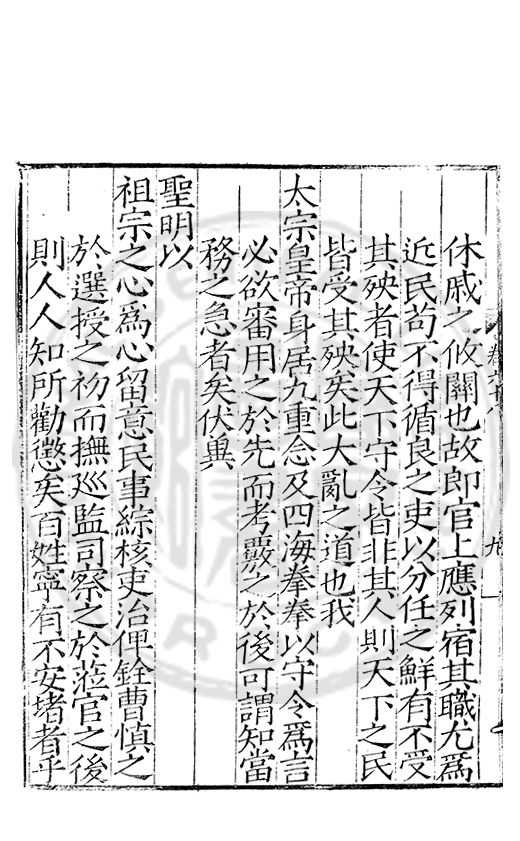 休戚之攸關也故郎官上應列宿其職尤爲
近民苟不得循良之吏以分任之鮮有不受
其殃者使天下守令皆非其人則天下之民
皆受其殃矣此大亂之道也我
太宗皇帝身居九重念及四海拳拳以守令爲言
必欲審用之於先而考覈之於後可謂知當
務之急者矣伏兾
聖明以
祖宗之心爲心留意民事綜核吏治俾銓曹慎之
於選授之初而撫廵監司察之於蒞官之後
則人人知所勸懲矣百姓寧有不安堵者乎